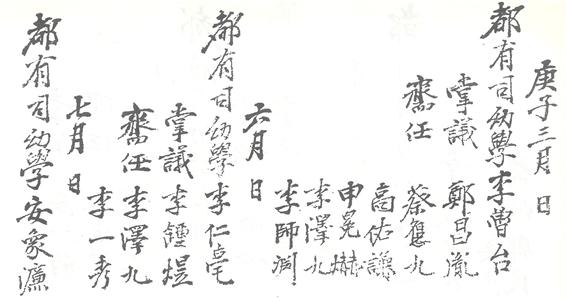 庚子三月 日
都有司幼學李曾台
掌議 鄭昌胤
齋任 蔡膺九
高佑謙
申冕
李澤九
李師淵
六月 日
都有司幼學李仁毫
掌議李鍾煜
齋任李澤九
李一秀
七月 日
都有司幼學安象濂